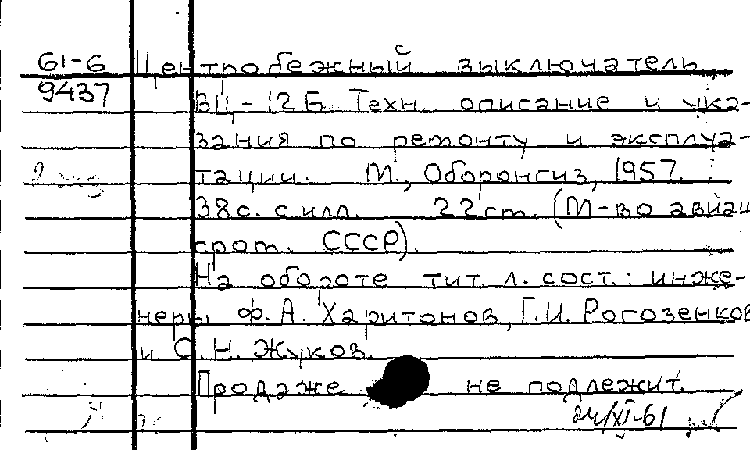 61-6 Центробежный выключатель
9437 ВЦ-12Б. Техн. описание и ука-
зания по ремонту и эксплуа-
тации. М., Оборонгиз, 1957.
38с. с илл. 22 см. (М-во авиац.
пром. СССР).
На обороте тит. л. сост.: инже-
неры Ф.А. Харитонов, Г.И. Рогозенков
и С.Н. Жуков.
Продаже не подлежит.
24/XI-61